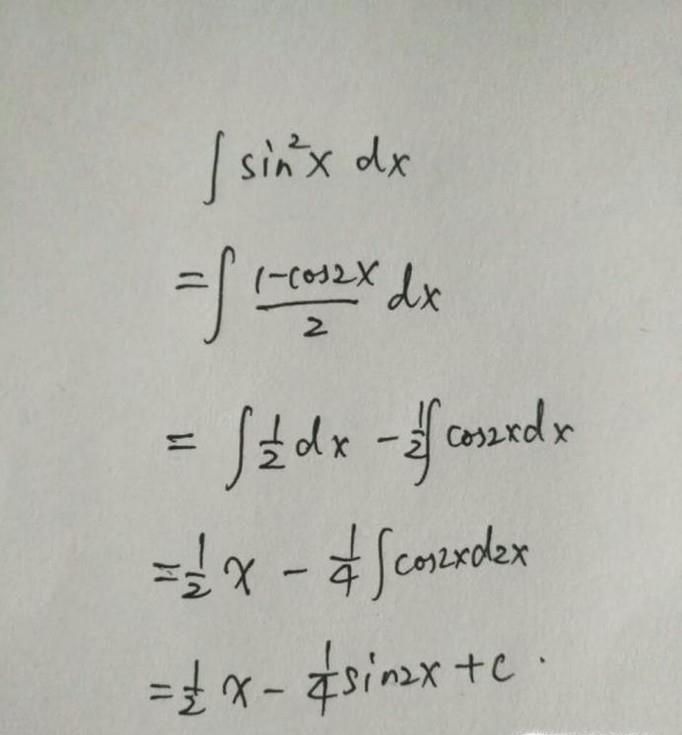 ∫ sin²x dx
= ∫ (1-cos2x)/2 dx
= ∫ 1/2 dx - 1/2 ∫ cos2xdx
= 1/2 x - 1/4 ∫ cos2xd2x
= 1/2 x - 1/4 sin2x + c .